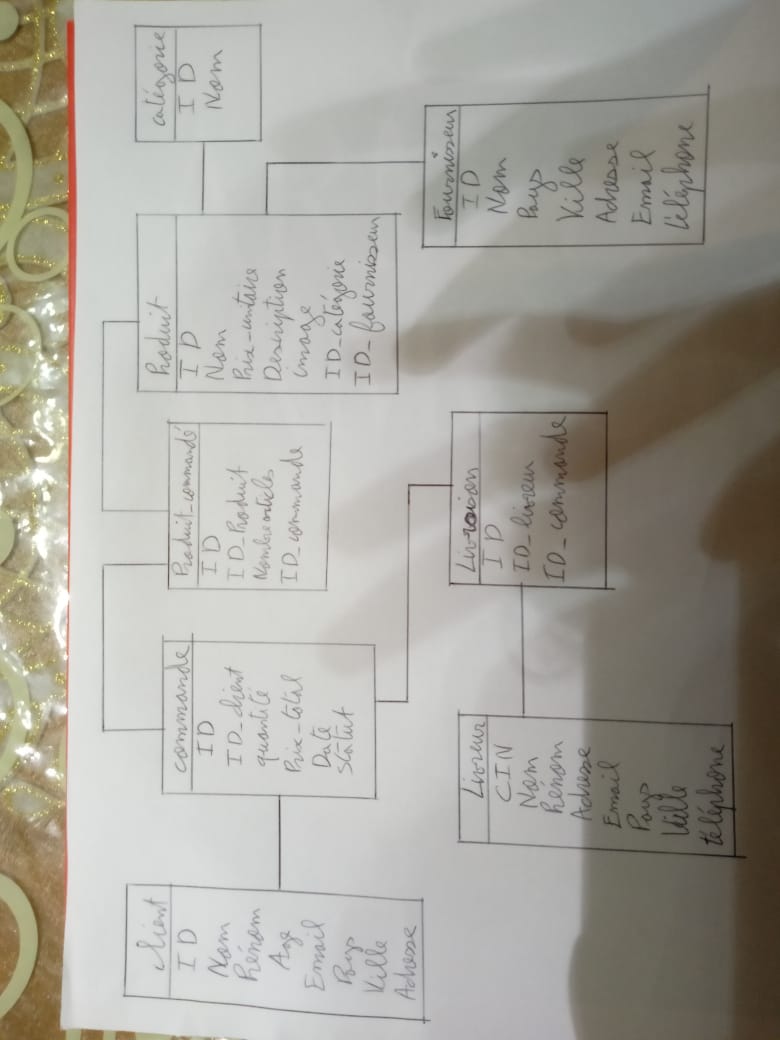 client
ID
Nom
Prénom
Age
Email
Pays
Ville
Adresse
commande
ID
ID_client
quantité
Prix_total
Date
statut
Produit_commandé
ID
ID_Produit
Nombre articles
ID_commande
Produit
ID
Nom
Prix_unitaire
Description
image
ID_catégorie
ID_fournisseur
catégorie
ID
Nom
Livreur
CIN
Nom
Prénom
Adresse
Email
Pays
Ville
téléphone
Livraison
ID
ID_livreur
ID_commande
Fournisseur
ID
Nom
Pays
Ville
Adresse
Email
téléphone